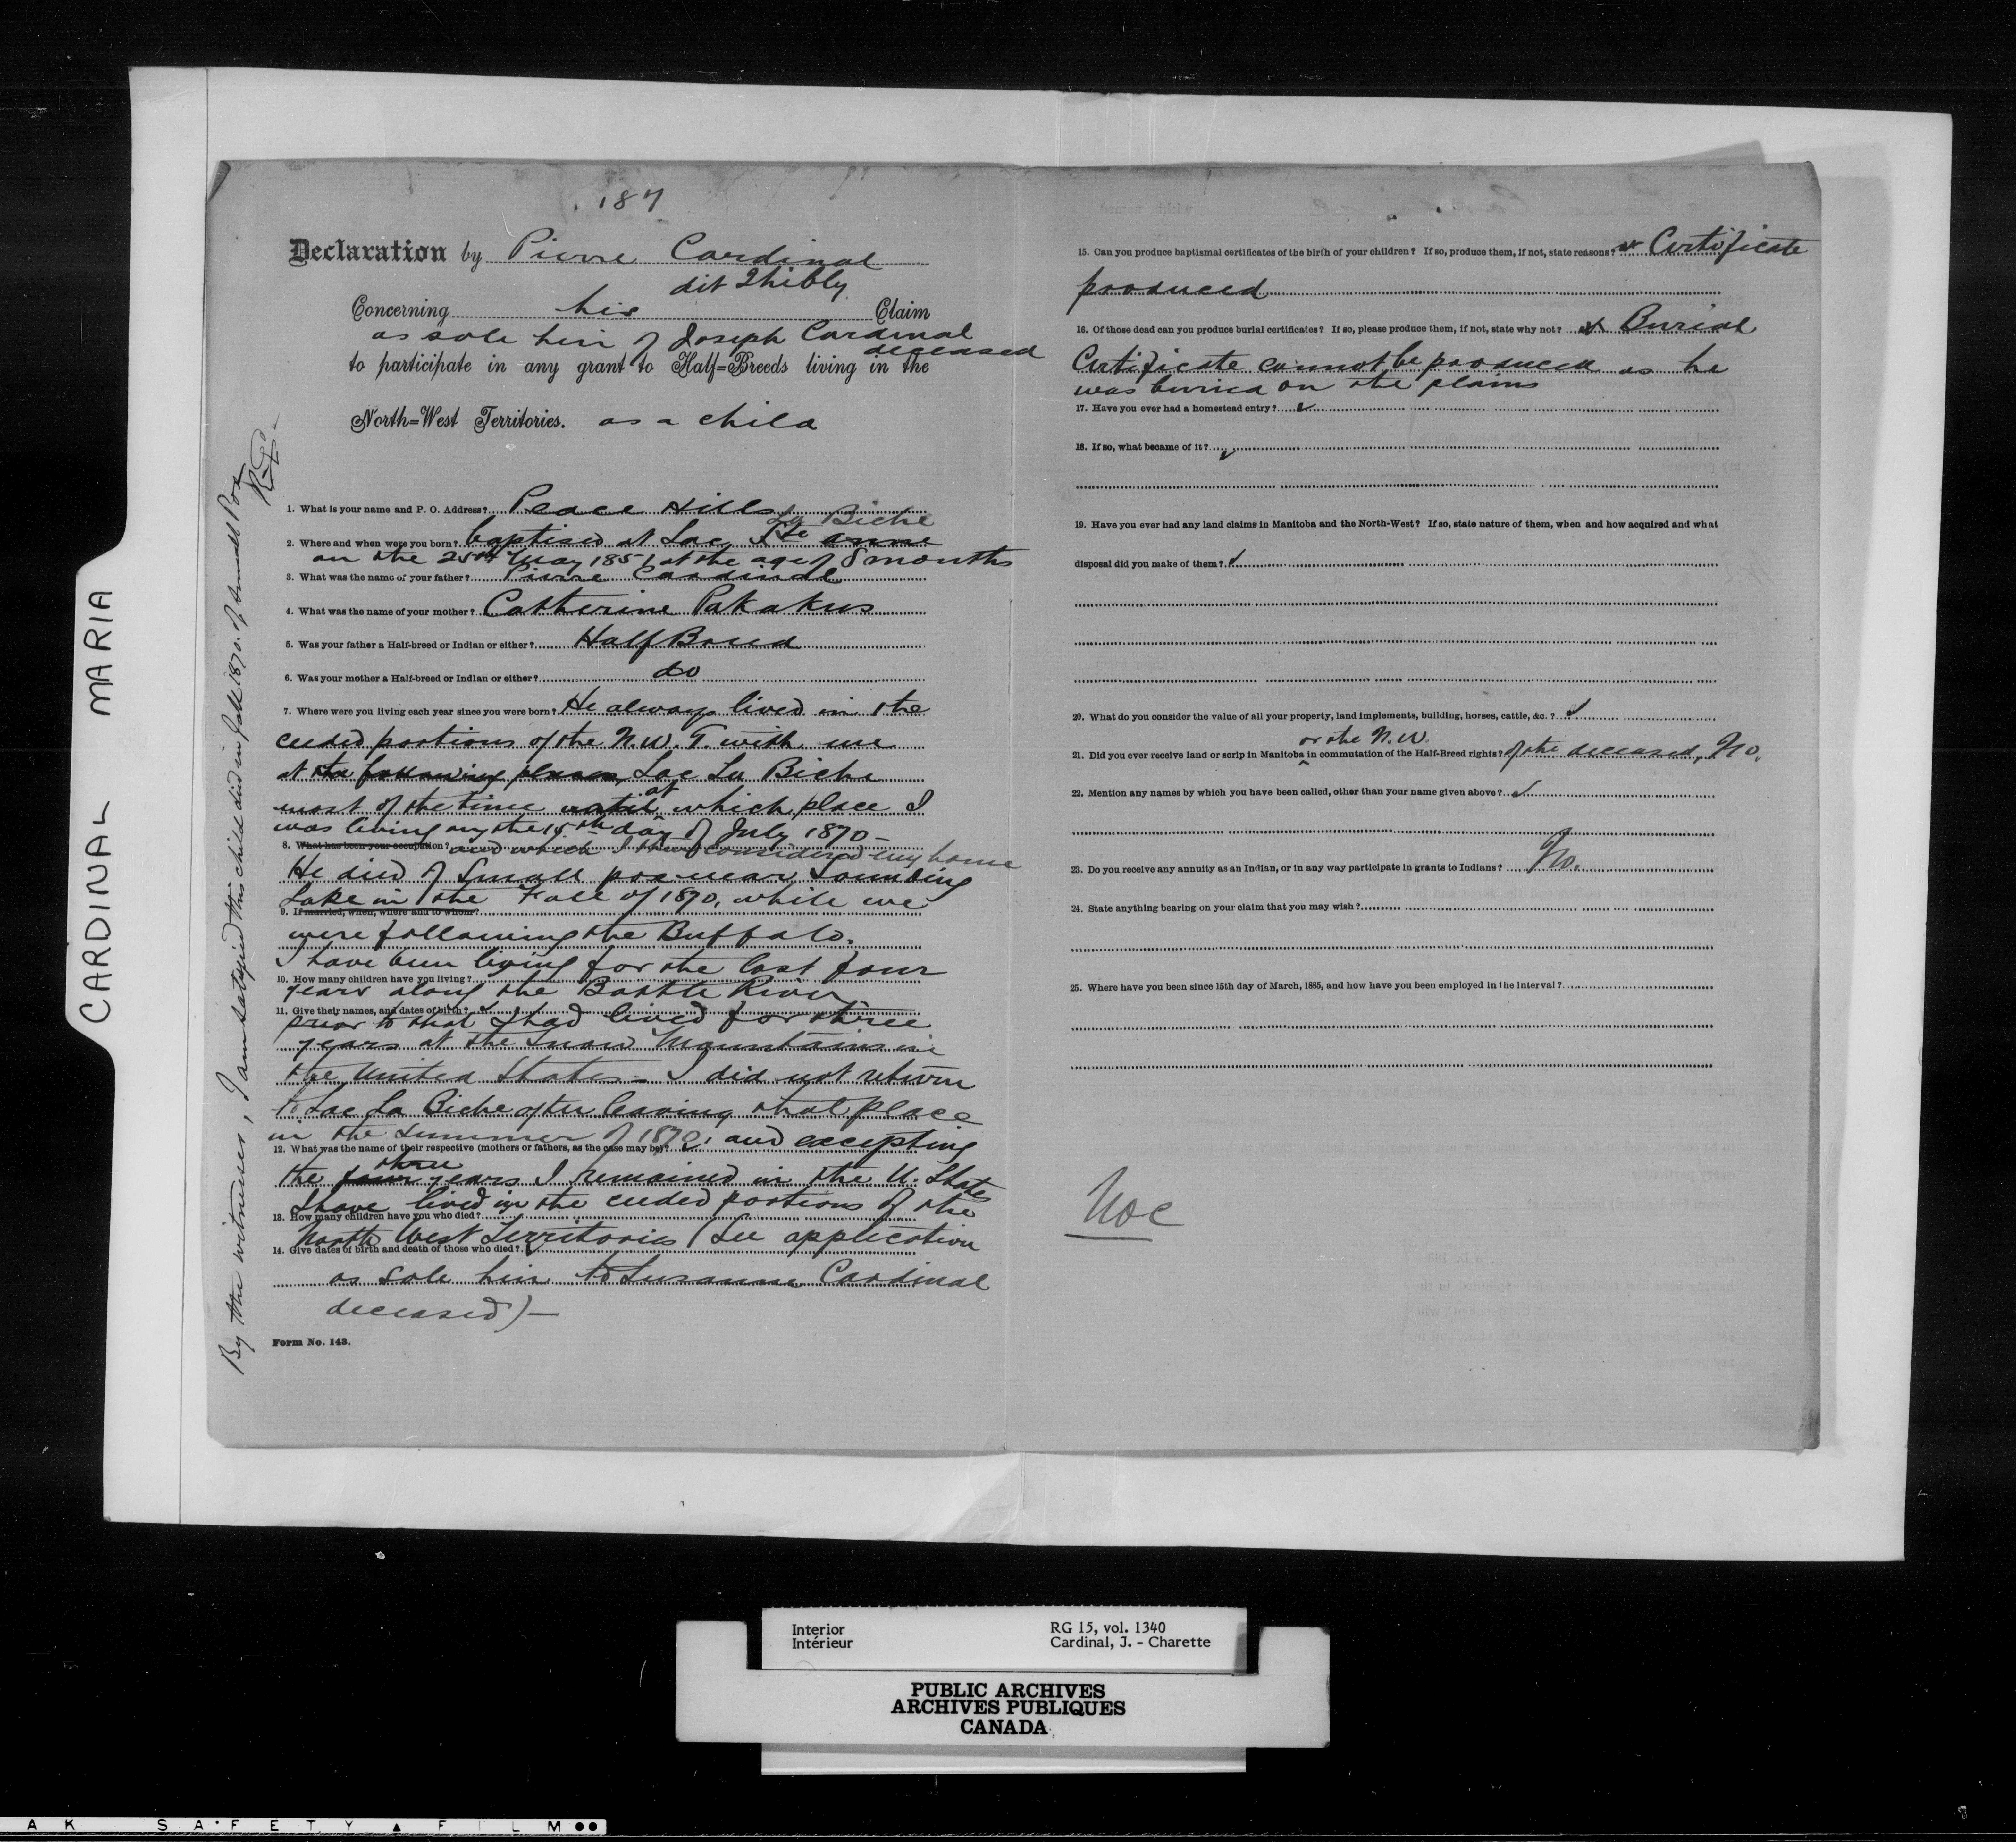 CARDINAL MARIA
187
Declaration by Pierre Cardinal
dit Thibly
Concerning his Claim
as sole heir of Joseph Cardinal
deceased
to participate in any grant to Half=Breeds living in the
North=West Territories. as a child
1. What is your name and P. O. Address? Peace Hills
La Biche
2. Where and when were you born? baptised at Lac Ste anne
on the 25th May 1851 at the age of 8 months
3. What was the name of your father? Pierre Cardinal
4. What was the name of your mother? Catherine Pakakus
5. Was your father a Half-breed or Indian or either? Half Breed
6. Was your mother a Half-breed or Indian or either? do
7. Where were you living each year since you were born? He always lived in the
ceded portions of the N.W.T. with me
at the following places, Lac La Biche
at
most of the time until which place I
was living on the 15th day of July 1870 -
8. What has been your occupation? and which I then considered my home
He died of Small pox near Sounding
Lake in the Fall of 1870, while we
9. If married, when, where and to whom?
were following the Buffalo.
I have been living for the last four
10. How many children have you living?
years along the Battle River
11. Give their names, and dates of birth?
prior to that I had lived for three
years at the Snow Mountains in
the United States - I did not return
to Lac La Biche after leaving that place
in the summer of 1870, and excepting
12. What was the name of their respective (mothers or fathers, as the case may be)?
three
the four years I remained in the U. States
I have lived in the ceded portions of the
13. How many children have you who died?
North West Territories (See application
14. Give dates of birth and death of those who died?
as sole heir to Susanne Cardinal
deceased) -
Form No. 143.
By the witnesses, I am satisfied this child died in fall 1870. of Small Pox
15. Can you produce baptismal certificates of the birth of your children? If so, produce them, if not, state reasons? Certificate
produced
16. Of those dead can you produce burial certificates? If so, please produce them, if not, state why not? Burial
Certificate cannot be produced as he
was buried on the plains
17. Have you ever had a homestead entry?
18. If so, what became of it?
19. Have you ever had any land claims in Manitoba and the North-West? If so, state nature of them, when and how acquired and what
disposal did you make of them?
20. What do you consider the value of all your property, land implements, building, horses, cattle, &c.?
or the N.W.
21. Did you ever receive land or scrip in Manitoba in commutation of the Half-Breed rights? of the deceased, No.
22. Mention any names by which you have been called, other than your name given above?
23. Do you receive any annuity as an Indian, or in any way participate in grants to Indians? No.
24. State anything bearing on your claim that you may wish?
25. Where have you been since 15th day of March, 1885, and how have you been employed in the interval?
Interior
Intérieur
RG 15, vol. 1340
Cardinal, J. - Charette
PUBLIC ARCHIVES
ARCHIVES PUBLIQUES
CANADA
A K S A F E T Y ▲ F I L M ●●
8